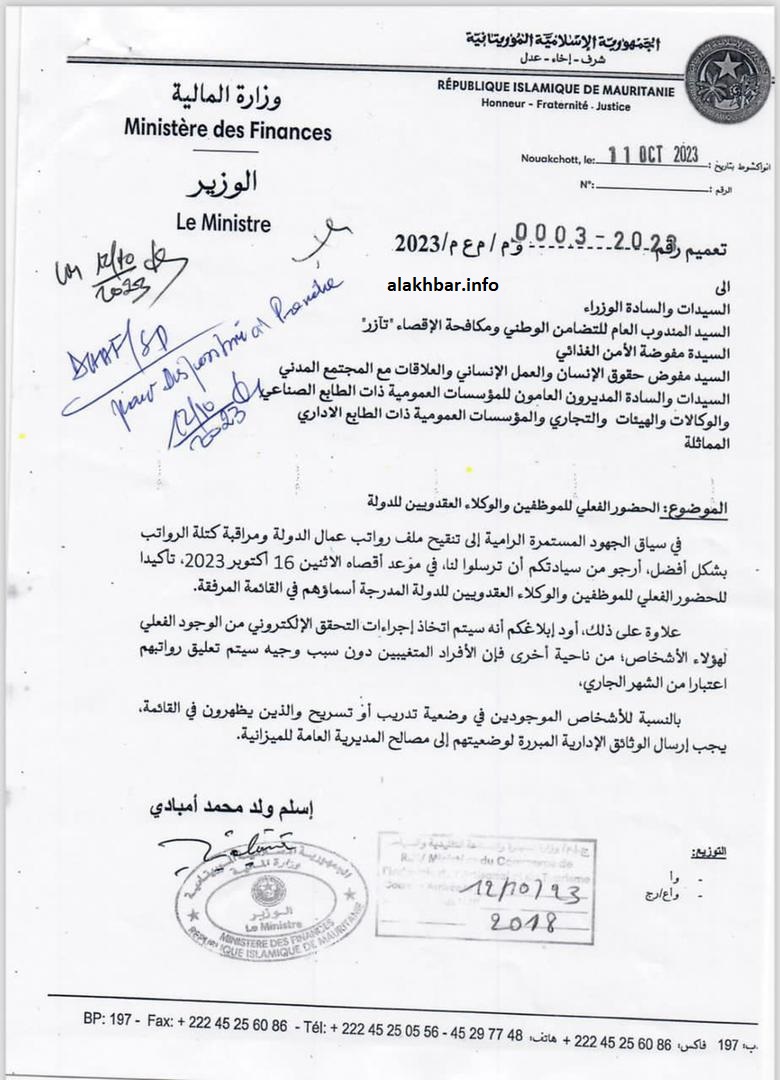 الجمهورية الإسلامية الموريتانية
شرف - إخاء - عدل
RÉPUBLIQUE ISLAMIQUE DE MAURITANIE
Honneur - Fraternité - Justice
وزارة المالية
Ministère des Finances
الوزير
Le Ministre
Nouakchott, le: 11 OCT 2023 انواكشوط بتاريخ:
N°: الرقم:
12/10
2023
تعميم رقم 0003-2023 و م / م ع م/ 2023
alakhbar.info
الى
السيدات والسادة الوزراء
السيد المندوب العام للتضامن الوطني ومكافحة الإقصاء "تآزر"
السيدة مفوضة الأمن الغذائي
السيد مفوض حقوق الإنسان والعمل الإنساني والعلاقات مع المجتمع المدني
السيدات والسادة المديرون العامون للمؤسسات العمومية ذات الطابع الصناعي
والوكالات والهيئات والتجاري والمؤسسات العمومية ذات الطابع الاداري
المماثلة
pour
12/10
2023
الموضوع: الحضور الفعلي للموظفين والوكلاء العقدويين للدولة
في سياق الجهود المستمرة الرامية إلى تنقيح ملف رواتب عمال الدولة ومراقبة كتلة الرواتب
بشكل أفضل، أرجو من سيادتكم أن ترسلوا لنا، في موعد أقصاه الاثنين 16 أكتوبر 2023، تأكيدا
للحضور الفعلي للموظفين والوكلاء العقدويين للدولة المدرجة أسماؤهم في القائمة المرفقة.
علاوة على ذلك، أود إبلاغكم أنه سيتم اتخاذ إجراءات التحقق الإلكتروني من الوجود الفعلي
لهؤلاء الأشخاص؛ من ناحية أخرى فإن الأفراد المتغيبين دون سبب وجيه سيتم تعليق رواتبهم
اعتبارا من الشهر الجاري،
بالنسبة للأشخاص الموجودين في وضعية تدريب أو تسريح والذين يظهرون في القائمة،
يجب إرسال الوثائق الإدارية المبررة لوضعيتهم إلى مصالح المديرية العامة للميزانية.
إسلم ولد محمد أمبادي
وزارة المالية
الوزير
Le Ministre
MINISTÈRE DES FINANCES
REPUBLIQUE ISLAMIQUE DE MAURITANIE
du Commerce de
Tourisme
12/10/23
2018
التوزيع:
- وا
- واع/رج
BP: 197 - Fax: + 222 45 25 60 86 - Tél: + 222 45 25 05 56 - 45 29 77 48 هاتف: + 222 45 25 60 86 فاكس: 197 ب: